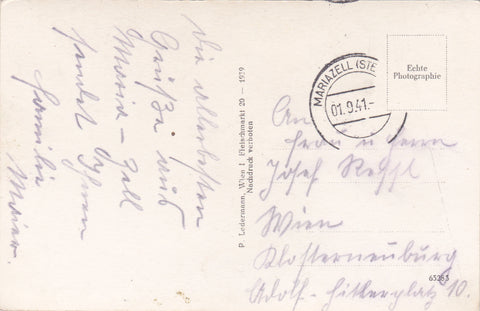 die allerbesten
Grüße aus
Maria-Zell
sendet Ihnen
Familie
Maier.
P. Ledermann, Wien I Fleischmarkt 20 — 1939
Nachdruck verboten
MARIAZELL (STE
01.9.41.-
Echte
Photographie
An
Herrn u Herrn
Josef
Wien
Klosterneuburg
Adolf-Hitlerplatz 10.
65283